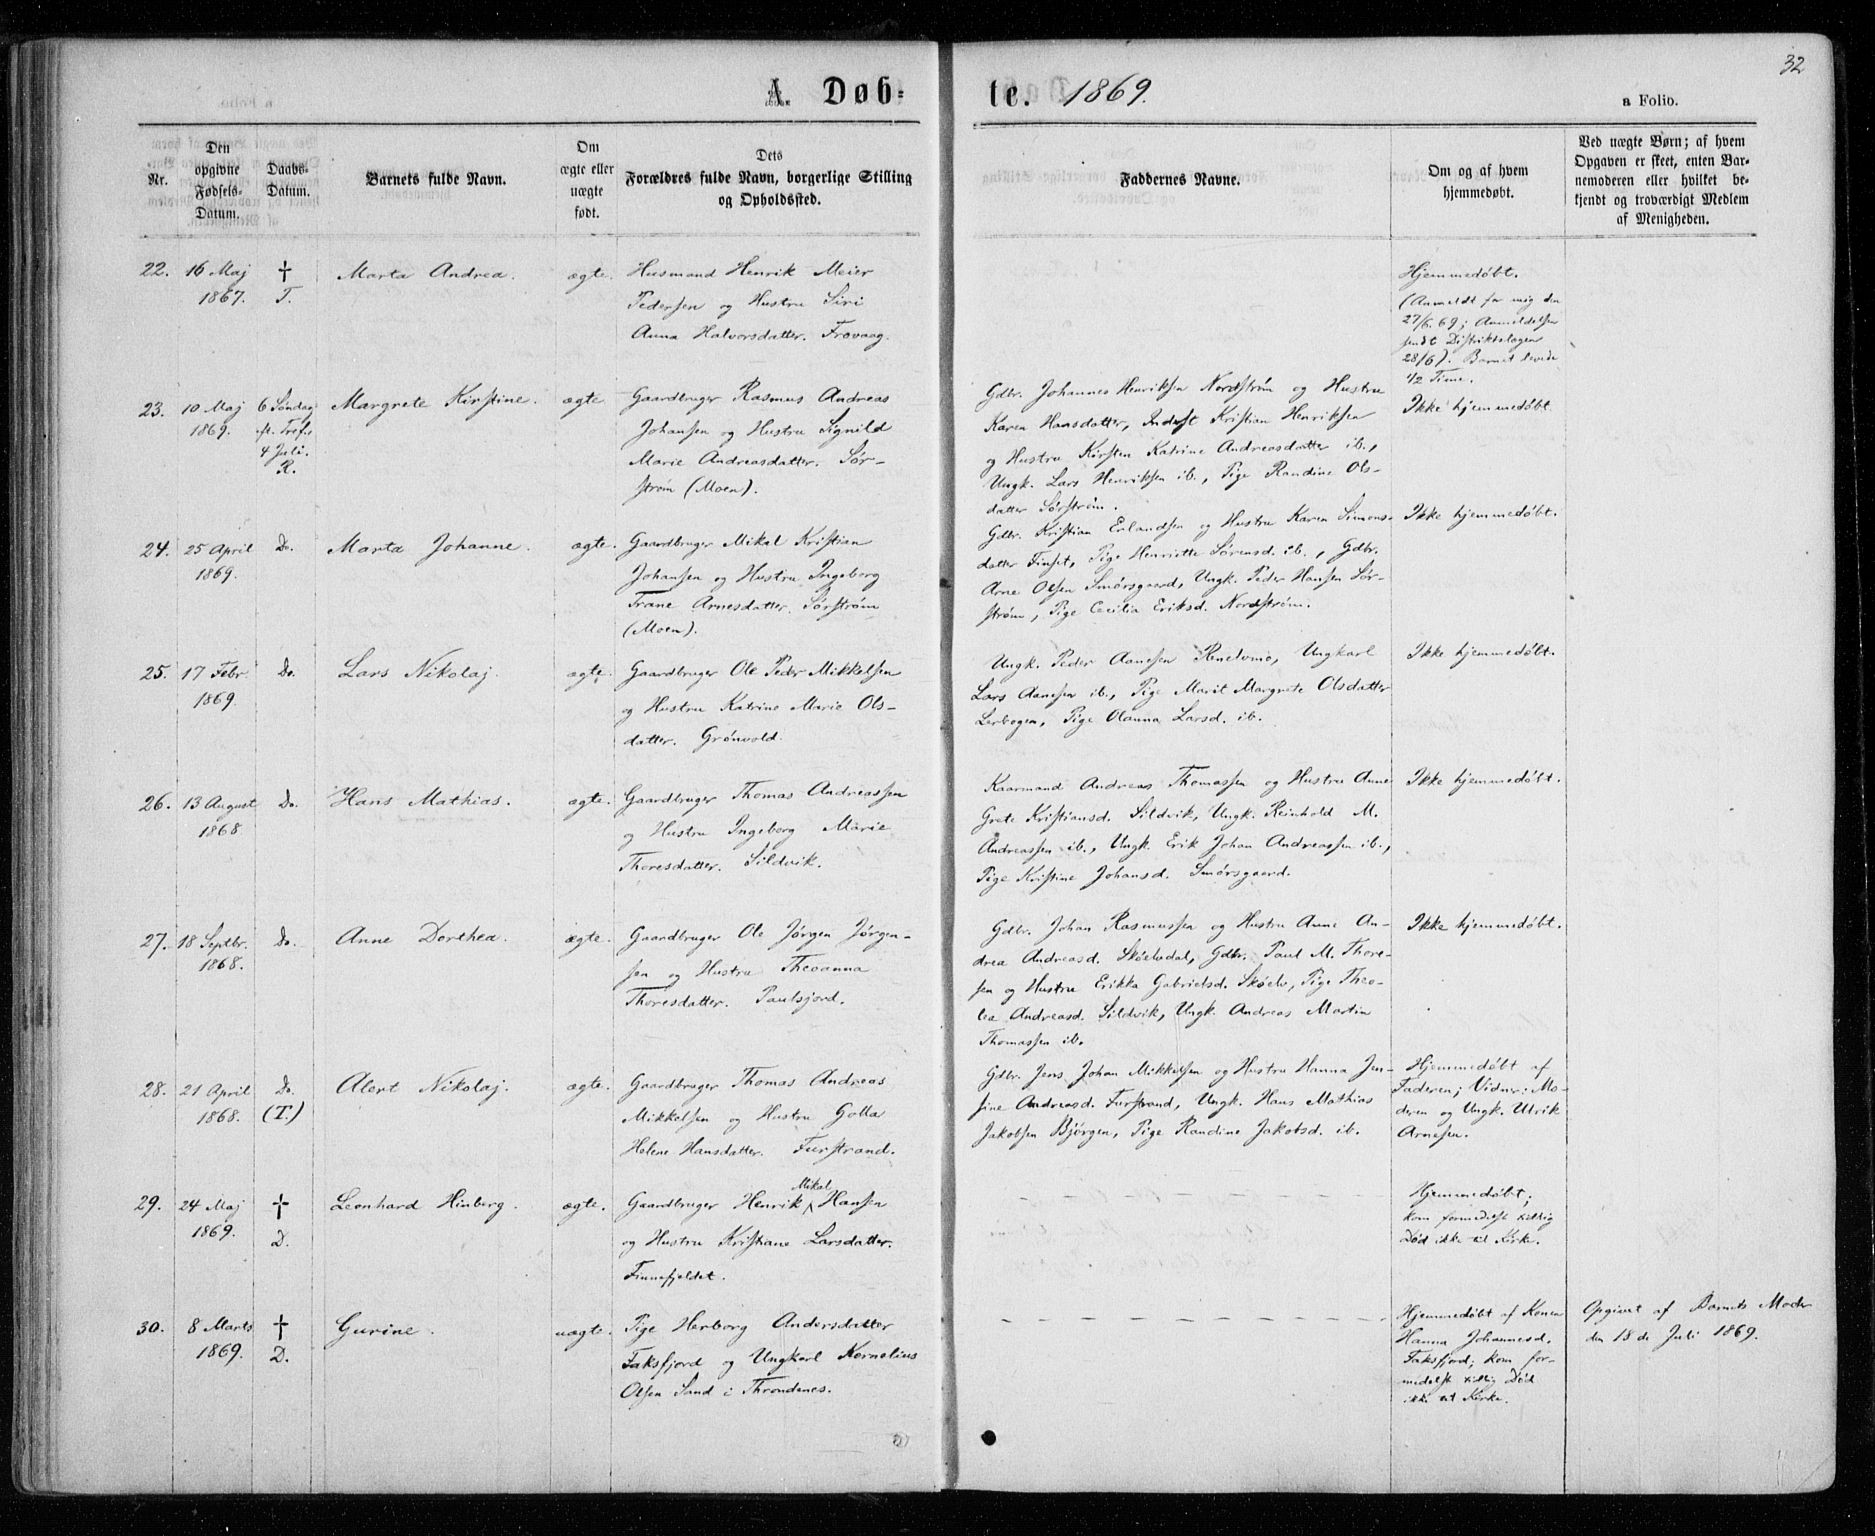 32
A. Døb= te. 1869.
a Folio.
Nr.
Den opgivne Fødsels-Datum.
Daabs-Datum.
Barnets fulde Navn.
Om ægte eller uægte født.
Dets
Forældres fulde Navn, borgerlige Stilling
og Opholdssted.
Faddernes Navne.
Om og af hvem
hjemmedøbt.
Ved uægte Børn; af hvem
Opgaven er skeet, enten Bar-
nemoderen eller hvilket be-
kjendt og troværdigt Medlem
af Menigheden.
22. 16 Maj 1867. † T. Marta Andrea. ægte.
Husmand Henrik Meier
Pedersen og Hustru Siri
Anna Halvorsdatter. Frovaag.
Hjemmedøbt.
(Anmeldt for mig den
27/6. 69; Anmeldelsen
sendt Distriktslægen
28/6). Barnet levede
1/2 Time.
23. 10 Maj 1869. 6 Søndag ft. Tref. 4 Juli. R. Margrete Kirstine. ægte
Gaardbruger Rasmus Andreas
Johansen og Hustru Signild
Marie Andreasdatter. Sør-
strøm (Moen).
Gdbr. Johannes Henriksen Nordstrøm og Hustru
Karen Hansdatter, Inderst Kristian Henriksen
og Hustru Kirsten Katrine Andreasdatter ib.,
Ungk. Lars Henriksen ib., Pige Randine Ols-
datter Sørstrøm.
Ikke hjemmedøbt.
24. 25 April 1869. Do. Marta Johanne. ægte.
Gaardbruger Mikal Kristian
Johansen og Hustru Ingeborg
Trane Arnesdatter. Sørstrøm
(Moen).
Gdbr. Kristian Erlandsen og Hustru Karen Simons-
datter Finset, Pige Henriette Sørensd. ib., Gdbr.
Arne Olsen Smørsgaard, Ungk. Peder Hansen Sør-
strøm, Pige Cecilia Eriksd. Nordstrøm.
Ikke hjemmedøbt.
25. 17 Febr. 1869. Do. Lars Nikolaj. ægte.
Gaardbruger Ole Peder Mikkelsen
og Hustru Katrine Marie Ols-
datter. Grønvold.
Ungk. Peder Aanesen Renelvmo, Ungkarl
Lars Aanesen ib., Pige Marit Margrete Olsdatter
Lerbogen, Pige Olanna Larsd. ib.
Ikke hjemmedøbt.
26. 13 August 1868 Do. Hans Mathias. ægte.
Gaardbruger Thomas Andreassen
og Hustru Ingeborg Marie
Thoresdatter. Sildvik.
Kaarmand Andreas Thomassen og Hustru Anne
Grete Kristiansd. Sildvik, Ungk. Reinhold M.
Andreassen ib., Ungk. Erik Johan Andreassen ib.,
Pige Kristine Johansd. Smørsgaard.
Ikke hjemmedøbt.
27. 18 Septbr. 1868. Do. Anne Dorthea. ægte.
Gaardbruger Ole Jørgen Jørgen-
sen og Hustru Theoanna
Thoresdatter. Paulsjord.
Gdbr. Johan Rasmussen og Hustru Anne An-
drea Andreasd. Skøelvdal, Gdbr. Paul M. Thore-
sen og Hustru Erikka Gabrielsd. Skøelv, Pige Theo-
lea Andreasd. Sildvik, Ungk. Andreas Martin
Thomassen ib.
Ikke hjemmedøbt.
28. 21 April 1868. Do. (T.) Alert Nikolaj. ægte.
Gaardbruger Thomas Andreas
Mikkelsen og Hustru Golla
Helene Hansdatter. Furstrand.
Gdbr. Jens Johan Mikkelsen og Hustru Hanna Jen-
sine Andreasd. Furstrand, Ungk. Hans Mathias
Jakobsen Bjørgen, Pige Randine Jakobsd. ib.
Hjemmedøbt af
Faderen; Vidner: Mo-
deren og Ungk. Ulrik
Arnesen.
29. 24 Maj 1869. † D. Leonhard Hinberg. ægte.
Gaardbruger Henrik Mikal Hansen
og Hustru Kristiane Larsdatter.
Finnefjeldet.
Hjemmedøbt;
kom formedelst tidlig
Død ikke til Kirke.
30. 8 Marts 1869. † D. Gurine. uægte.
Pige Herborg Andersdatter
Faksfjord og Ungkarl Kornelius
Olsen Sand i Throndenes.
Hjemmedøbt af Konen
Hanna Johannesd.
Faksfjord; kom for-
medelst tidlig Død
ikke til Kirke.
Opgivet af Barnets Moder
den 18de Juli 1869.